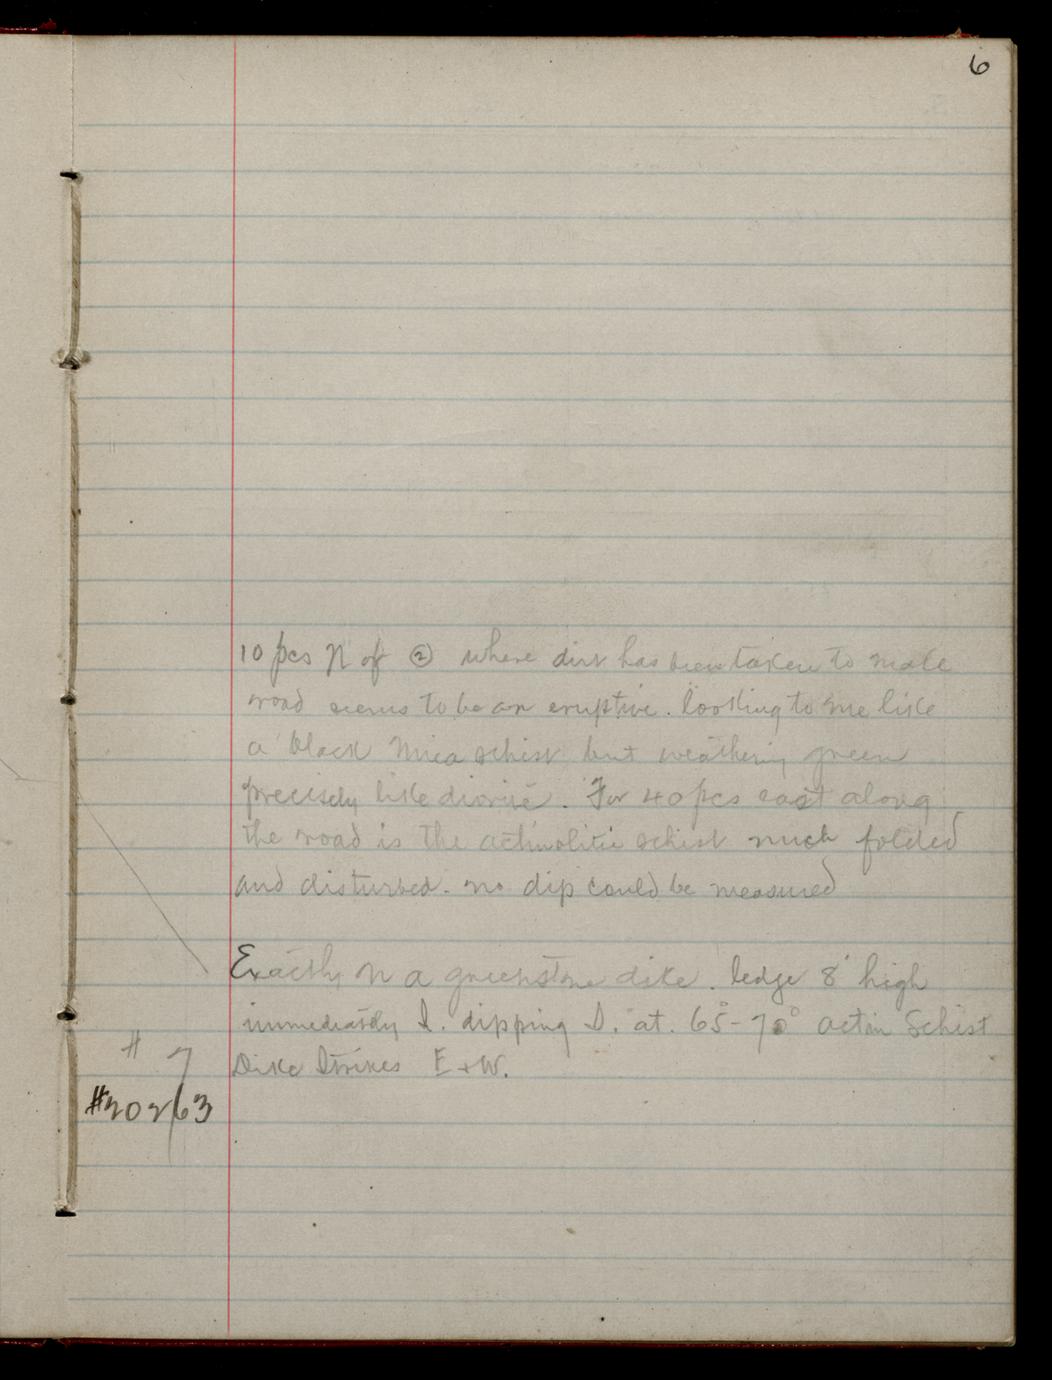 6
10 pcs N of ② where dirt has been taken to make
road seems to be an eruptive. looking to me like
a black mica schist but weathering green
precisely like diorite. For 40 pcs east along
the road is the actinolitic schist much folded
and disturbed. no dip could be measured
Exactly on a greenstone dike. ledge 8' high
immediately S. dipping S. at. 65-70° actin Schist
# 7
Dike Strikes E + W.
#20263